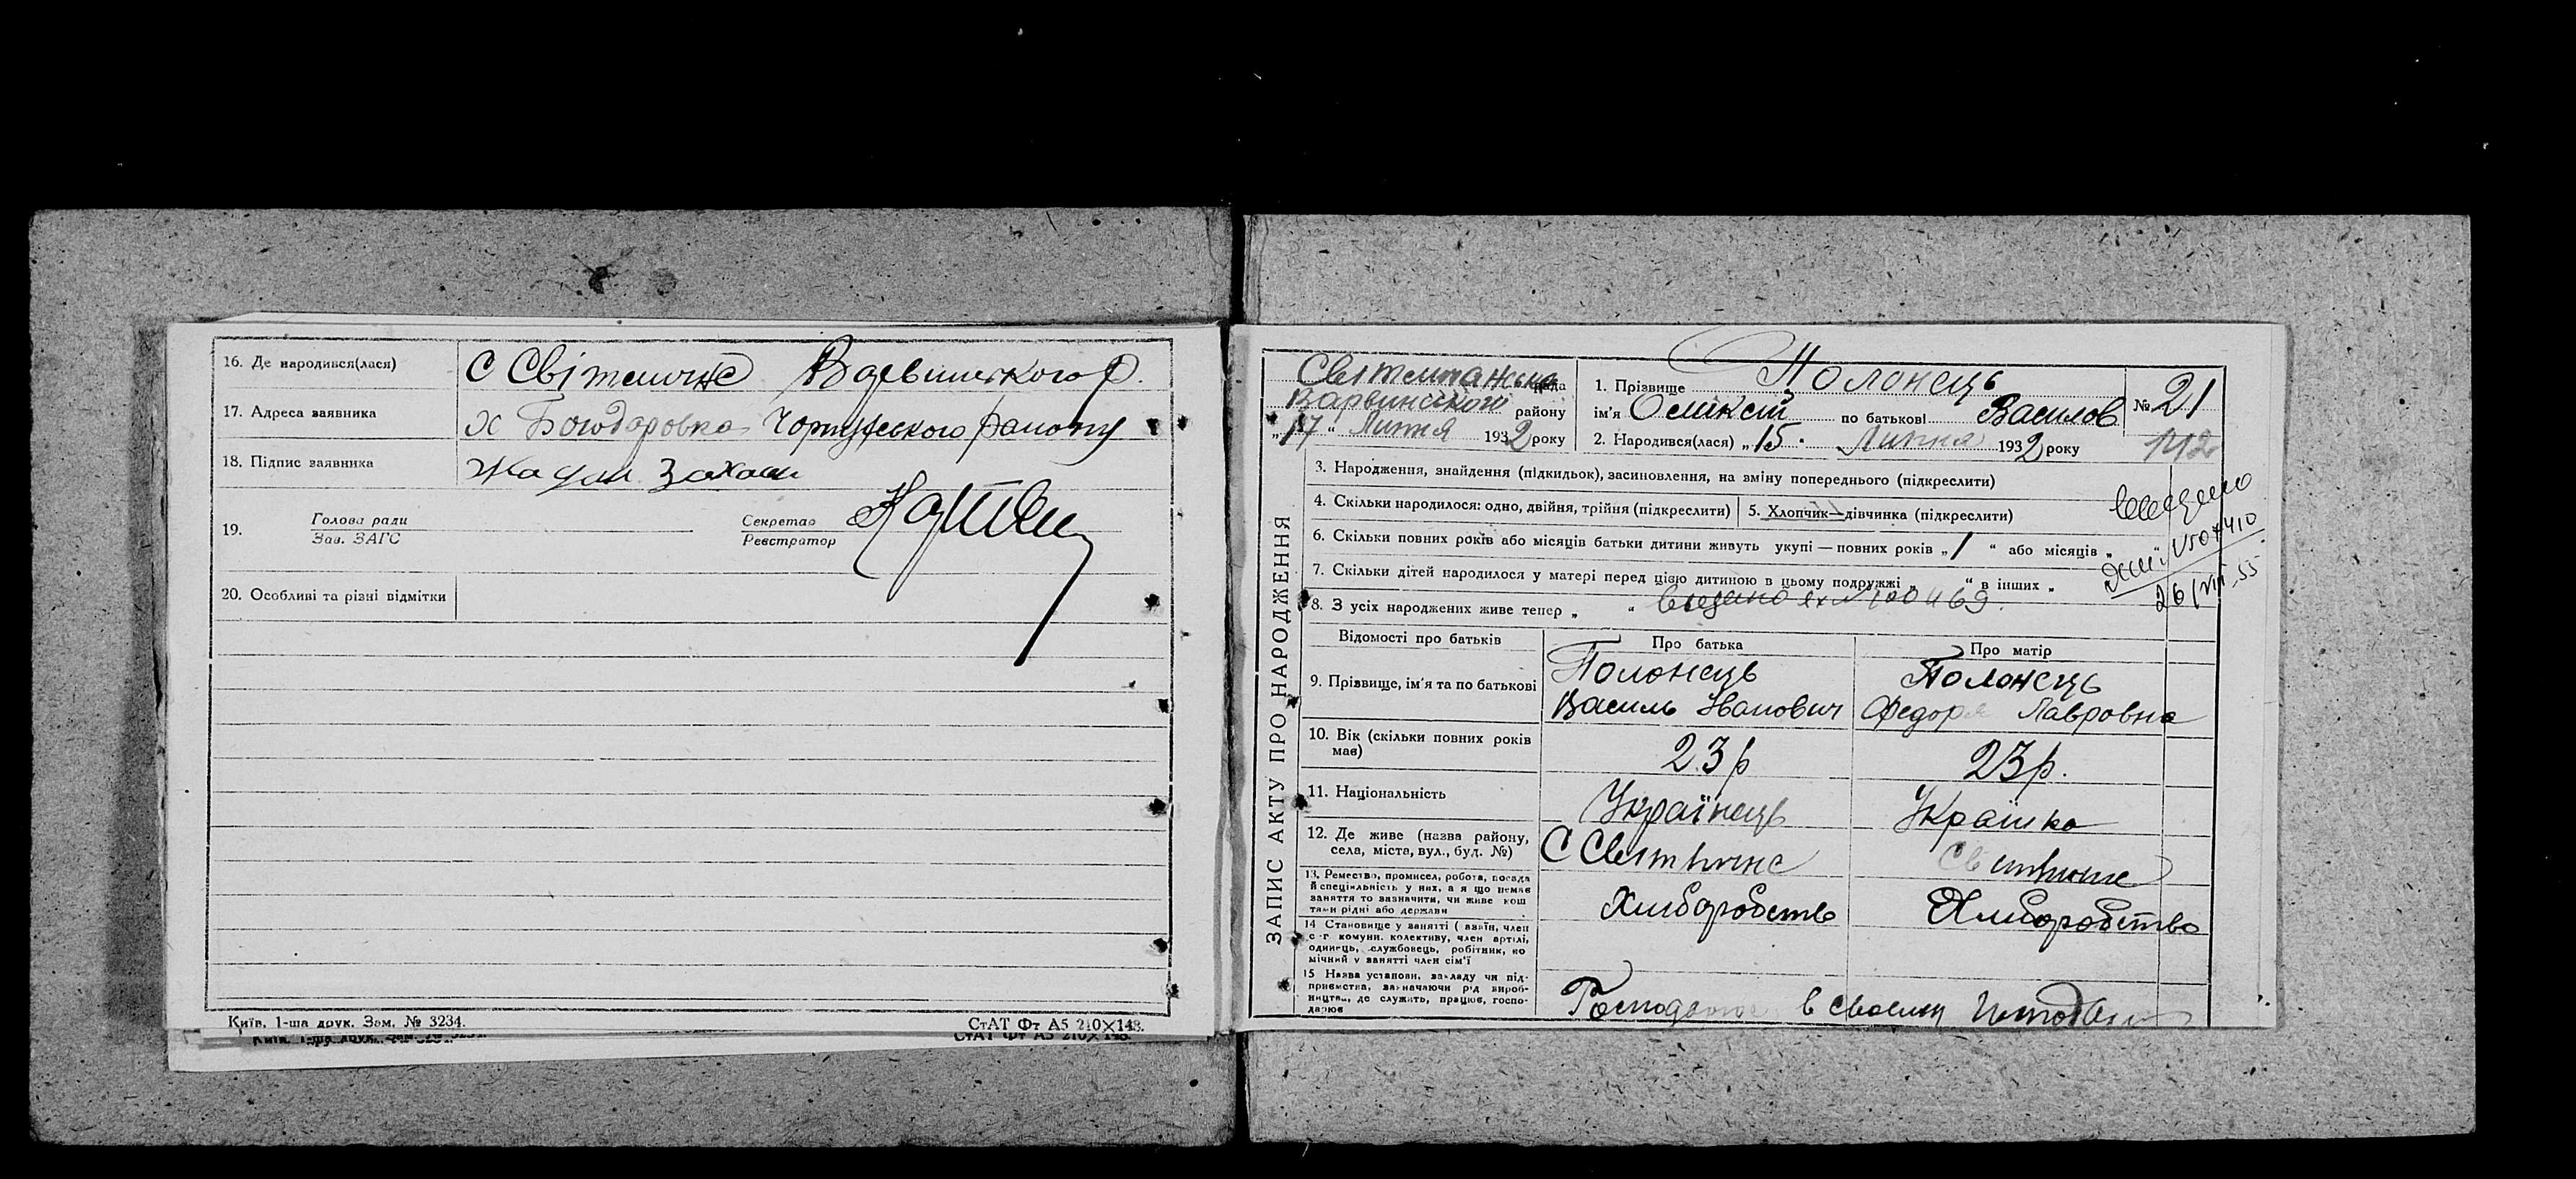 16. Де народився(лася)
с Світличне Варвинського р.
17. Адреса заявника
х Богодаровка Чорнуського району
18. Підпис заявника
Жадан
19.
Голова ради
Зав. ЗАГС
Секретар
Реєстратор
20. Особливі та різні відмітки
Київ, 1-ша друк. Зам. № 3234.
СтАТ Фт А5 210×148.
СтАТ Фт А5 210×148.
ЗАПИС АКТУ ПРО НАРОДЖЕННЯ
рада
Варвинського району
„17“ Липня 1932 року
1. Прізвище Полонець
ім'я Олексій по батькові Василов
№ 21
2. Народився(лася) „15. Липня 1932 року
142
3. Народження, знайдення (підкидьок), засиновлення, на зміну попереднього (підкреслити)
4. Скільки народилося: одно, двійня, трійня (підкреслити)
5. Хлопчик—дівчинка (підкреслити)
6. Скільки повних років або місяців батьки дитини живуть укупі — повних років „1“ або місяців „ “
7. Скільки дітей народилося у матері перед цією дитиною в цьому подружжі „ “ в інших „
8. З усіх народжених живе тепер „ “
26/VIII-55
Відомості про батьків
Про батька
Про матір
9. Прізвище, ім'я та по батькові
Полонець
Василь Іванович
Полонець
Федора Лавровна
10. Вік (скільки повних років має)
23 р
23 р.
11. Національність
Українець
Українка
12. Де живе (назва району,
села, міста, вул., буд. №)
С Світличне
Світличне
13. Ремество, промисел, робота, посада
й спеціяльність у них, а я що немає
заняття то зазначити, чи живе кош
тами рідні або держави
Хліборобство
Хліборобство
14 Становище у занятті ( азяїн, член
с-г комуни, колективу, член артілі,
одинець, службовець, робітник, по
мічний у занятті член сім'ї
15 Назва установи, закладу чи під-
приємства, зазначаючи рід вироб-
ництва, де служить, працює, госпо-
дарює
в своєму